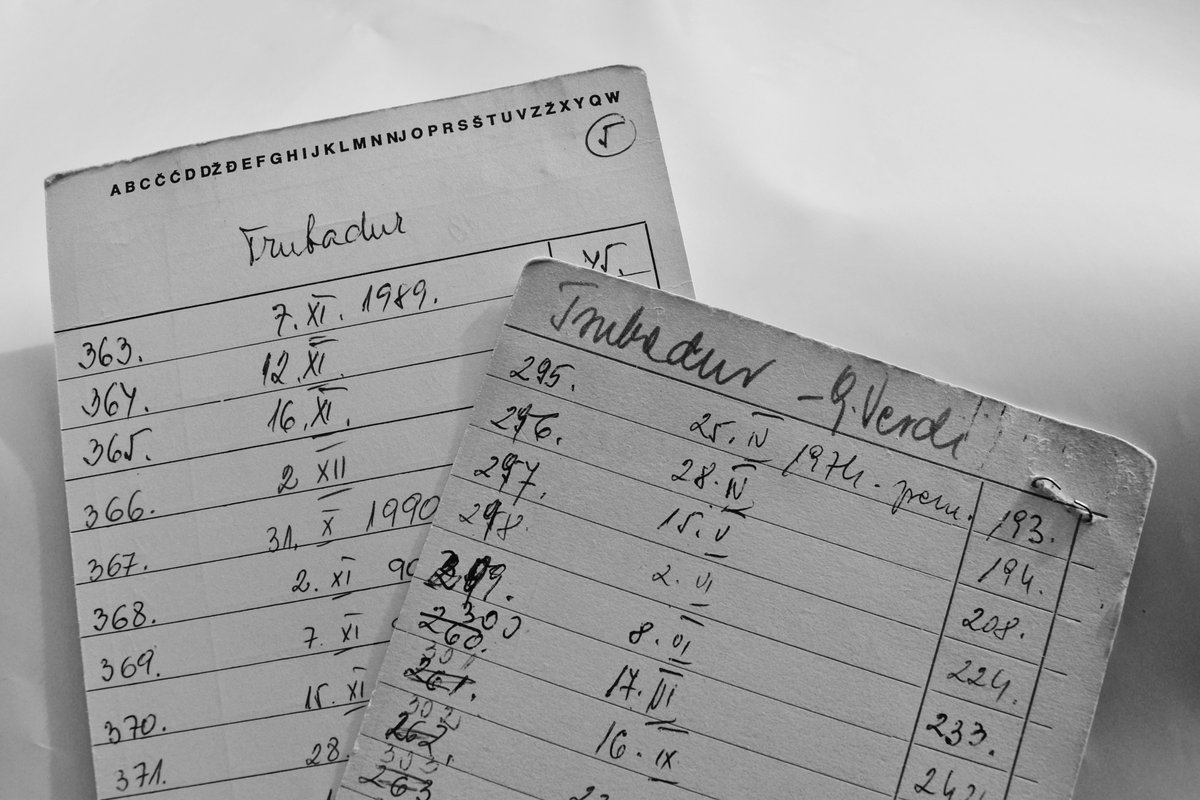 ABCČĆDDŽĐEFGHIJKLMNNJOPRSŠTUVZŽXYQW
5
Trubadur
45.
363. 7. XI. 1989.
364. 12. XI.
365. 16. XI.
366. 2 XII
367. 31. X 1990
368. 2. XI 90
369. 7. XI
370. 15. XI
371. 28.
Trubadur – G. Verdi
295. 25. IV 1974. prem. 193.
296. 28. IV 194.
297. 15. V 208.
298. 2. VI 224.
299. 8. VI 233.
300 260. 17. 
301 261. 16. IX
302 262.
303. 263